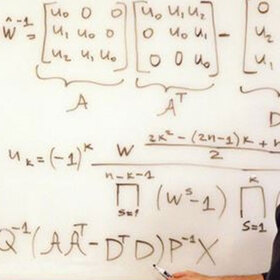 Ŵ⁻¹ = [u₀ 0 0; u₁ u₀ 0; u₂ u₁ u₀] [u₀ u₁ u₂; 0 u₀ u₁; 0 0 u₀] - [0
A Aᵀ D
u_k = (-1)^k W^((2k²-(2n-1)k+n)/2) / ∏_{s=1}^{n-k-1} (W^s-1) ∏_{s=1}^{k}
Q⁻¹(AAᵀ-DᵀD)P⁻¹X